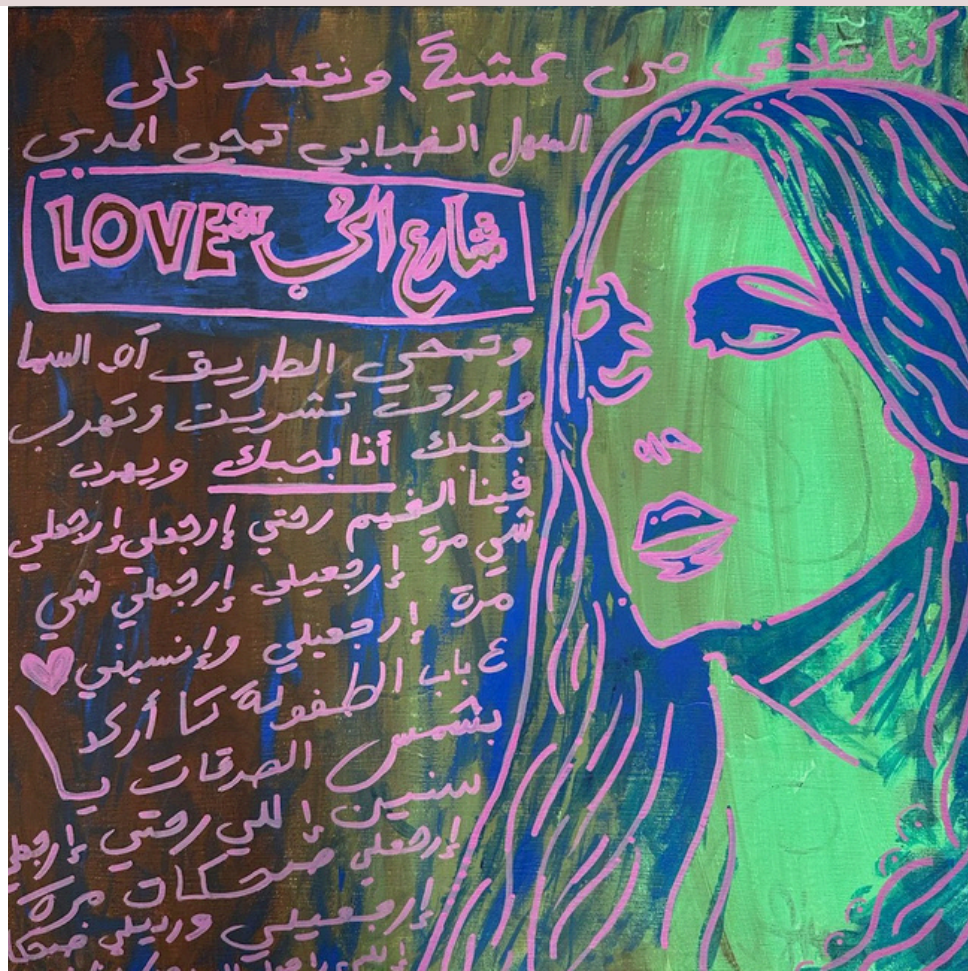 كنا نتلاقى من عشية ونقعد على
السهل الضبابي تمحي المدى
شارع الحب LOVE ST
وتمحي الطريق آه السما
وورقت تشريت وتهرب
بحبك أنا بحبك ويهرب
فينا الغيم رحتي إرجعلي إرجعلي
شي مرة إرجعيلي إرجعلي شي
مرة إرجعيلي وإنسيني
ع باب الطفولة تـا أركد
بشمس الطرقات يا
سنين إللي رحتي إرجعلي
إرجعلي ضحكات مرة
إرجعيلي ورديلي ضحكا